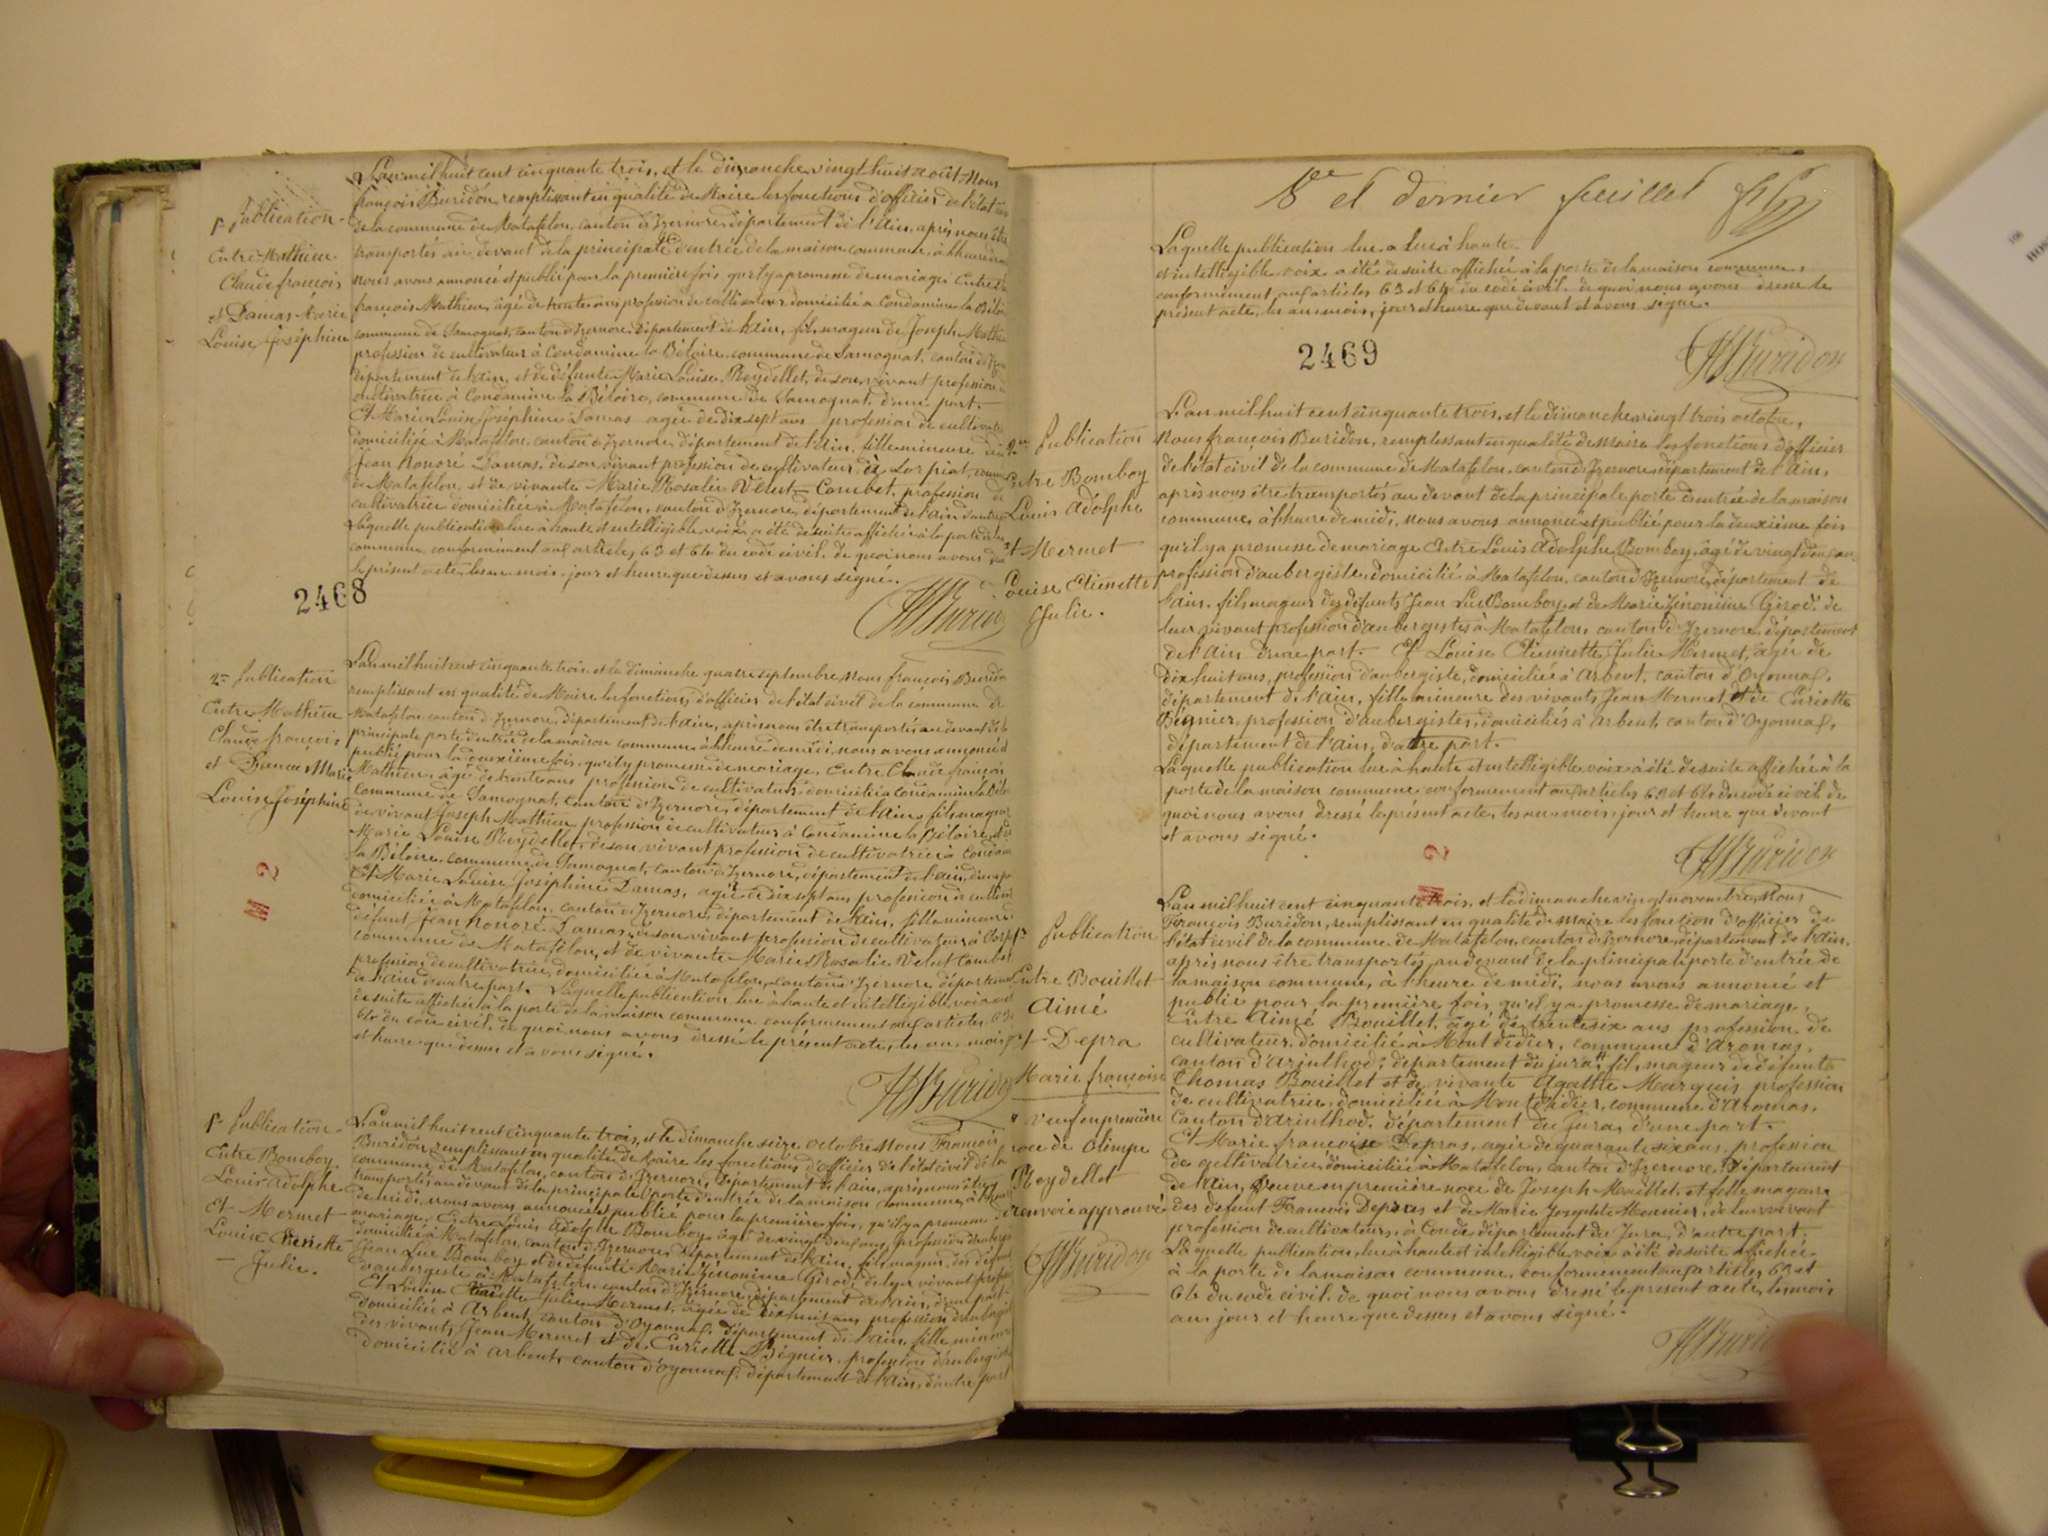 L'an mil huit cent cinquante trois, et le dimanche vingt huit août Nous
françois Buridon remplissant en qualité de Maire les fonctions d'officier de l'état civil
de la commune de Matafelon, canton d'Izernore, département de l'Ain, après nous être
transportés au devant de la principale d'entrée de la maison commune, à l'heure de
nous avons annoncé et publié pour la première fois qu'il y a promesse de mariage, Entre
françois Mathieu, âgé de trente ans profession de cultivateur domicilié à Condamine la Béloire
commune de Samognat, canton d'Izernore, département de l'ain, fils majeur de Joseph Mathieu
profession de cultivateur à Condamine la Béloire, commune de Samognat, canton d'Izernore
département de l'ain, et de défunte Marie Louise Reydellet, de son vivant profession de
cultivatrice à Condamine la Béloire, commune de Samognat, d'une part.
Et Marie Louise Joséphine Damas agée de dix sept ans profession de
domiciliée à Matafelon, canton d'Izernore, département de l'Ain, fille mineure de
Jean honoré Damas, de son vivant profession de cultivateur de Corpiat,
de Matafelon, et de vivante Marie Rosalie Velut-Combet, profession de
cultivatrice domiciliée à Matafelon, canton d'Izernore, département de l'ain d'autre
Laquelle publication lue à haute et intelligible voix, a été de suite affichée à la porte de la
commune conformément aux articles 63 et 64 du code civil. de quoi nous avons
le présent acte, les an mois, jour et heure que dessus et avons signé.
Buridon
1re Publication
Entre Mathieu
Claude françois
et Damas Marie
Louise Joséphine
2468
2me Publication
Entre Mathieu
Claude françois
et Damas Marie
Louise Joséphine
L'an mil huit cent cinquante trois et le dimanche quatre septembre, nous françois Buridon
remplissant en qualité de Maire les fonctions d'officier de l'état civil de la commune de
Matafelon canton d'Izernore, département de l'ain, après nous être transportés au devant de la
principale porte d'entrée de la maison commune à l'heure de midi, nous avons annoncé et
publié pour la deuxième fois, qu'il y a promesse de mariage, Entre Claude françois
Mathieu, âgé de trente ans profession de cultivateur domicilié à Condamine la Béloire
commune de Samognat, canton d'Izernore, département de l'ain, fils majeur
de vivant Joseph Mathieu profession de cultivateur à Condamine la Béloire, et de
Marie Louise Reydellet, de son vivant profession de cultivatrice à Condamine
la Béloire, commune de Samognat, canton d'Izernore, département de l'ain,
Et Marie Louise Joséphine Damas, agée de dix sept ans profession
domiciliée à Matafelon, canton d'Izernore, département de l'ain, fille mineure
défunt Jean honoré Damas, de son vivant profession de cultivateur à Corpiat
commune de Matafelon, et de vivante Marie Rosalie Velut Combet
profession de cultivatrice, domiciliée à Matafelon, canton d'Izernore, département
de l'ain d'autre part. Laquelle publication lue à haute et intelligible voix a été
de suite affichée à la porte de la maison commune conformément aux articles 63 et
64 du code civil, de quoi nous avons dressé le présent acte, les an mois
et heure que dessus et avons signé.
Buridon
M 2
1re Publication
Entre Bomboy
Louis Adolphe
Et Mermet
Louise
Julie.
L'an mil huit cent cinquante trois, et le dimanche seize octobre Nous François
Buridon remplissant en qualité de Maire les fonctions d'officier de l'état civil de la
commune de Matafelon, canton d'Izernore, département de l'ain, après nous être
transportés au devant de la principale porte d'entrée de la maison commune, à l'heure
de midi, nous avons annoncé et publié pour la première fois, qu'il y a promesse
mariage, Entre Louis Adolphe Bomboy, âgé de vingt deux ans, profession
domicilié à Matafelon, canton d'Izernore, département de l'ain, fils majeur des défunts
Jean Luc Bomboy et de défunte Marie Jéronime Girod, de leur vivant profession
d'aubergiste à Matafelon, canton d'Izernore, département de l'ain, d'une part
Et Louise Julie Mermet, agée de dix huit ans profession d'aubergiste
domiciliée à Arbent, canton d'Oyonnax, département de l'ain, fille mineure
des vivants Jean Mermet et de Enriette Bégnier, profession d'aubergiste
domicilié à Arbent, canton d'Oyonnax, département de l'Ain, d'autre part
8e et dernier feuillet
Laquelle publication lue à haute
et intelligible voix a été de suite affichée à la porte de la maison commune,
conformément aux articles 63 et 64 du code civil. de quoi nous avons dressé le
présent acte, les an mois, jour et heure que devant et avons signé.
Buridon
2469
2me Publication
Entre Bomboy
Louis Adolphe
Et Mermet
Louise Etiennette
Julie.
L'an mil huit cent cinquante trois, et le dimanche vingt trois octobre,
Nous françois Buridon, remplissant en qualité de Maire les fonctions d'officier
de l'état civil de la commune de Matafelon, canton d'Izernore, département de l'Ain,
après nous être transportés au devant de la principale porte d'entrée de la maison
commune, à l'heure de midi, nous avons annoncé et publié pour la deuxième fois
qu'il y a promesse de mariage Entre Louis Adolphe Bomboy, âgé de vingt deux ans
profession d'aubergiste, domicilié à Matafelon, canton d'Izernore, département de
l'ain, fils majeur des défunts Jean Luc Bomboy et de Marie Jéronime Girod, de
leur vivant profession d'aubergistes à Matafelon, canton d'Izernore, département
de l'Ain d'une part. Et Louise Etiennette Julie Mermet, agée de
dix huit ans, profession d'aubergiste, domiciliée à Arbent, canton d'Oyonnax,
département de l'ain, fille mineure des vivants Jean Mermet et de Enriette
Bégnier, profession d'aubergistes, domiciliés à Arbent, canton d'Oyonnax,
département de l'ain, d'autre part.
Laquelle publication lue à haute et intelligible voix à été de suite affichée à la
porte de la maison commune conformément aux articles 63 et 64 du code civil. de
quoi nous avons dressé le présent acte, les an mois, jour et heure que devant
et avons signé.
Buridon
M 2
1re Publication
Entre Bouillet
Aimé
Et Depra
Marie françoise
veuf en première
noce de Olimpe
Reydellet
renvoi approuvé
Buridon
L'an mil huit cent cinquante trois, et le dimanche vingt novembre, Nous
François Buridon, remplissant en qualité de Maire les fonction d'officier de
l'état civil de la commune de Matafelon, canton d'Izernore, département de l'ain,
après nous être transportés au devant de la principale porte d'entrée de
la maison commune, à l'heure de midi, nous avons annoncé et
publié pour la première fois, qu'il y a promesse de mariage,
Entre Aimé Bouillet, âgé de trente six ans profession de
cultivateur, domicilié à Mont dédier, commune d'Aromas,
canton d'Arinthod, département du jura, fils majeur de défunt
Thomas Bouillet et de vivante Agathe Marquis profession
de cultivatrice, domiciliée à Mont didier, commune d'Aromas,
Canton d'Arinthod, département du Jura, d'une part.
Et Marie françoise Depras, agée de quarante six ans, profession
de cultivatrice domiciliée à Matafelon, canton d'Izernore, Département
de l'ain, Veuve en première noce de Joseph Maillet, et fille majeure
des défunt François Depras et de Marie Josephte Meunier, de leur vivant
profession de cultivateurs, à Condes département du Jura, d'autre part.
Laquelle publication, lue à haute et intelligible voix à été de suite affichée
à la porte de la maison commune, conformément aux articles 63 et
64 du code civil. de quoi nous avons dressé le présent acte, les mois
an jour et heure que dessus et avons signé.
Buridon